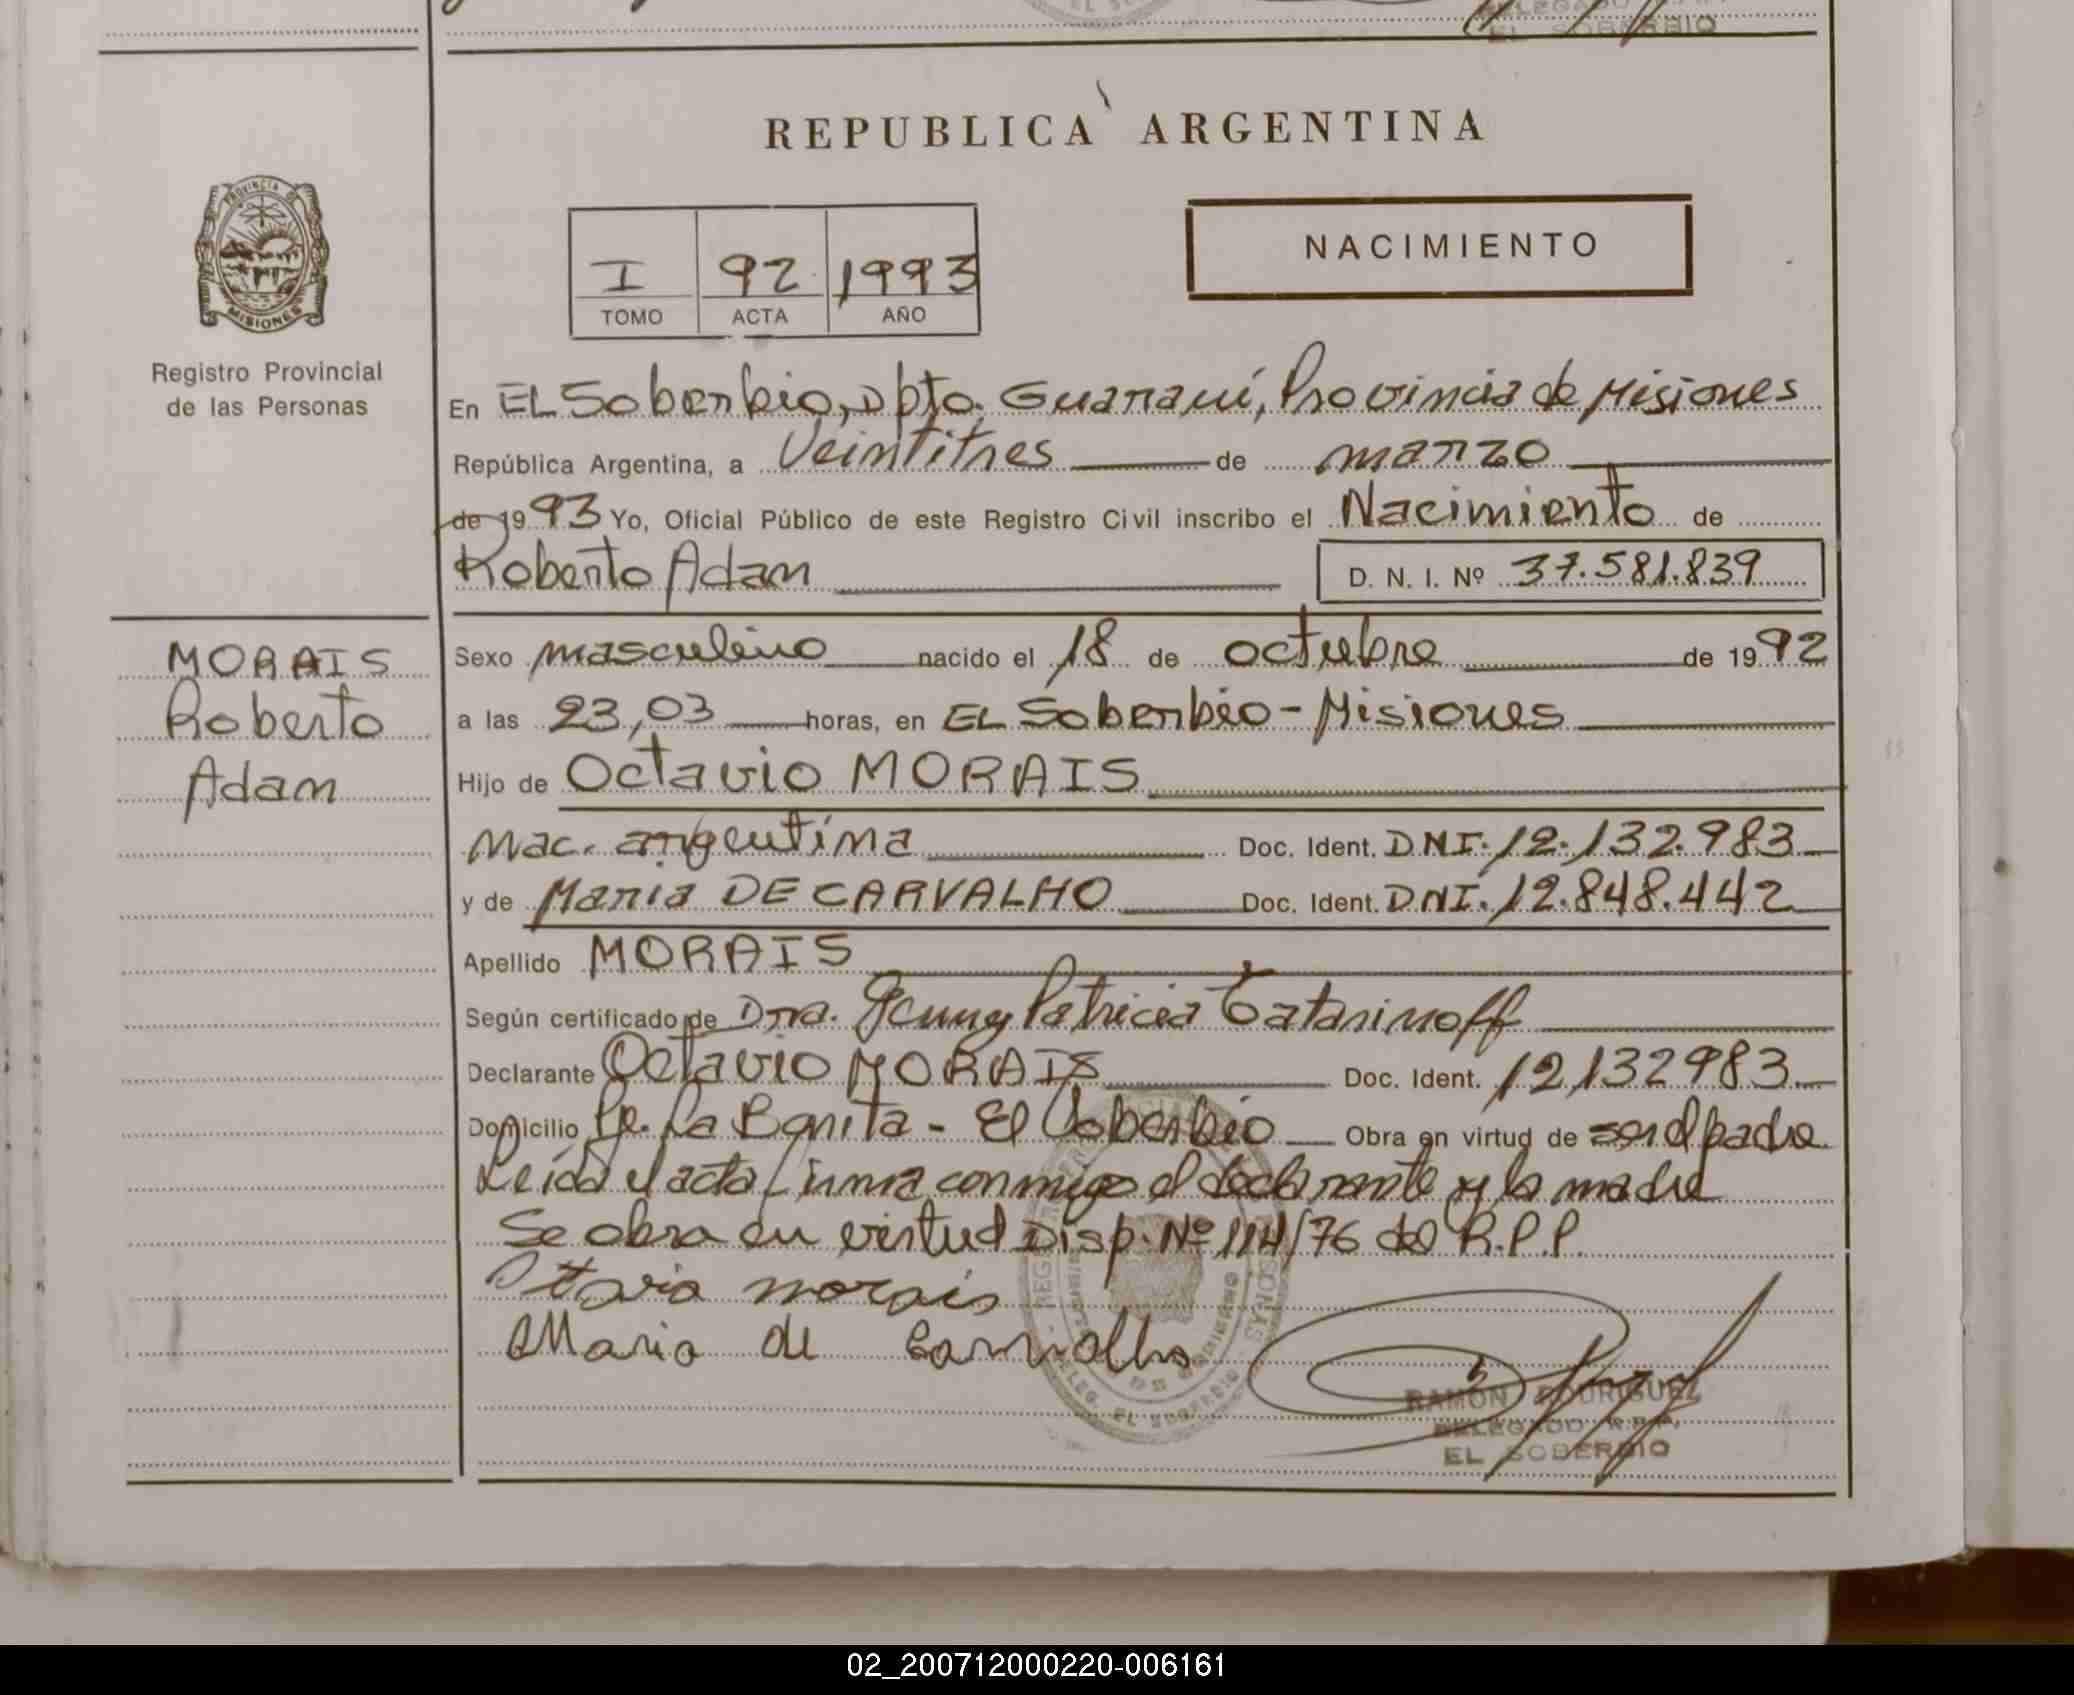 EL SOBERBIO
REPUBLICA ARGENTINA
PROVINCIA DE
MISIONES
Registro Provincial
de las Personas
I 92 1993
TOMO ACTA AÑO
NACIMIENTO
En EL Soberbio, Dpto. Guaraní, Provincia de Misiones
República Argentina, a Veintitres de marzo
de 1993 Yo, Oficial Público de este Registro Civil inscribo el Nacimiento de
Roberto Adam D. N. I. Nº 37.581.839
MORAIS
Roberto
Adam
Sexo masculino nacido el 18 de octubre de 1992
a las 23,03 horas, en EL Soberbio - Misiones
Hijo de Octavio MORAIS
Nac. argentina Doc. Ident. DNI. 12.132.983
y de Maria DE CARVALHO Doc. Ident. DNI. 12.848.442
Apellido MORAIS
Según certificado de Dra. Jenny Patricia Tatarinoff
Declarante Octavio MORAIS Doc. Ident. 12132983
Domicilio Pje. La Bonita - El Soberbio Obra en virtud de ser el padre
Leida el acta firma conmigo el declarante y la madre
Se obra en virtud Disp. Nº 114/76 del R.P.P.
Otavio morais
Maria de Carvalho
DELEG. EL SOBERBIO
RAMON RODRIGUEZ
DELEGADO R.P.P.
EL SOBERBIO
02_200712000220-006161